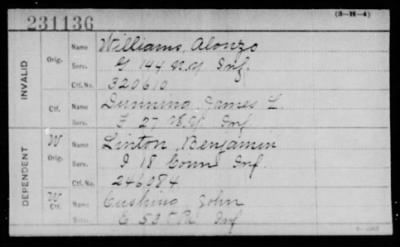 231136
(3-H-4)
INVALID
Orig. Name Williams, Alonzo
Serv. G 144 N.Y. Inf.
Ctf. No. 320610
Ctf. Name Dunning, James L.
Serv. F 27 Inf
DEPENDENT
W Orig. Name Linton, Benjamin
Serv. I 18 Conn Inf.
Ctf. No. 246984
W Ctf. Name Cushing John
Serv. C 53 Inf